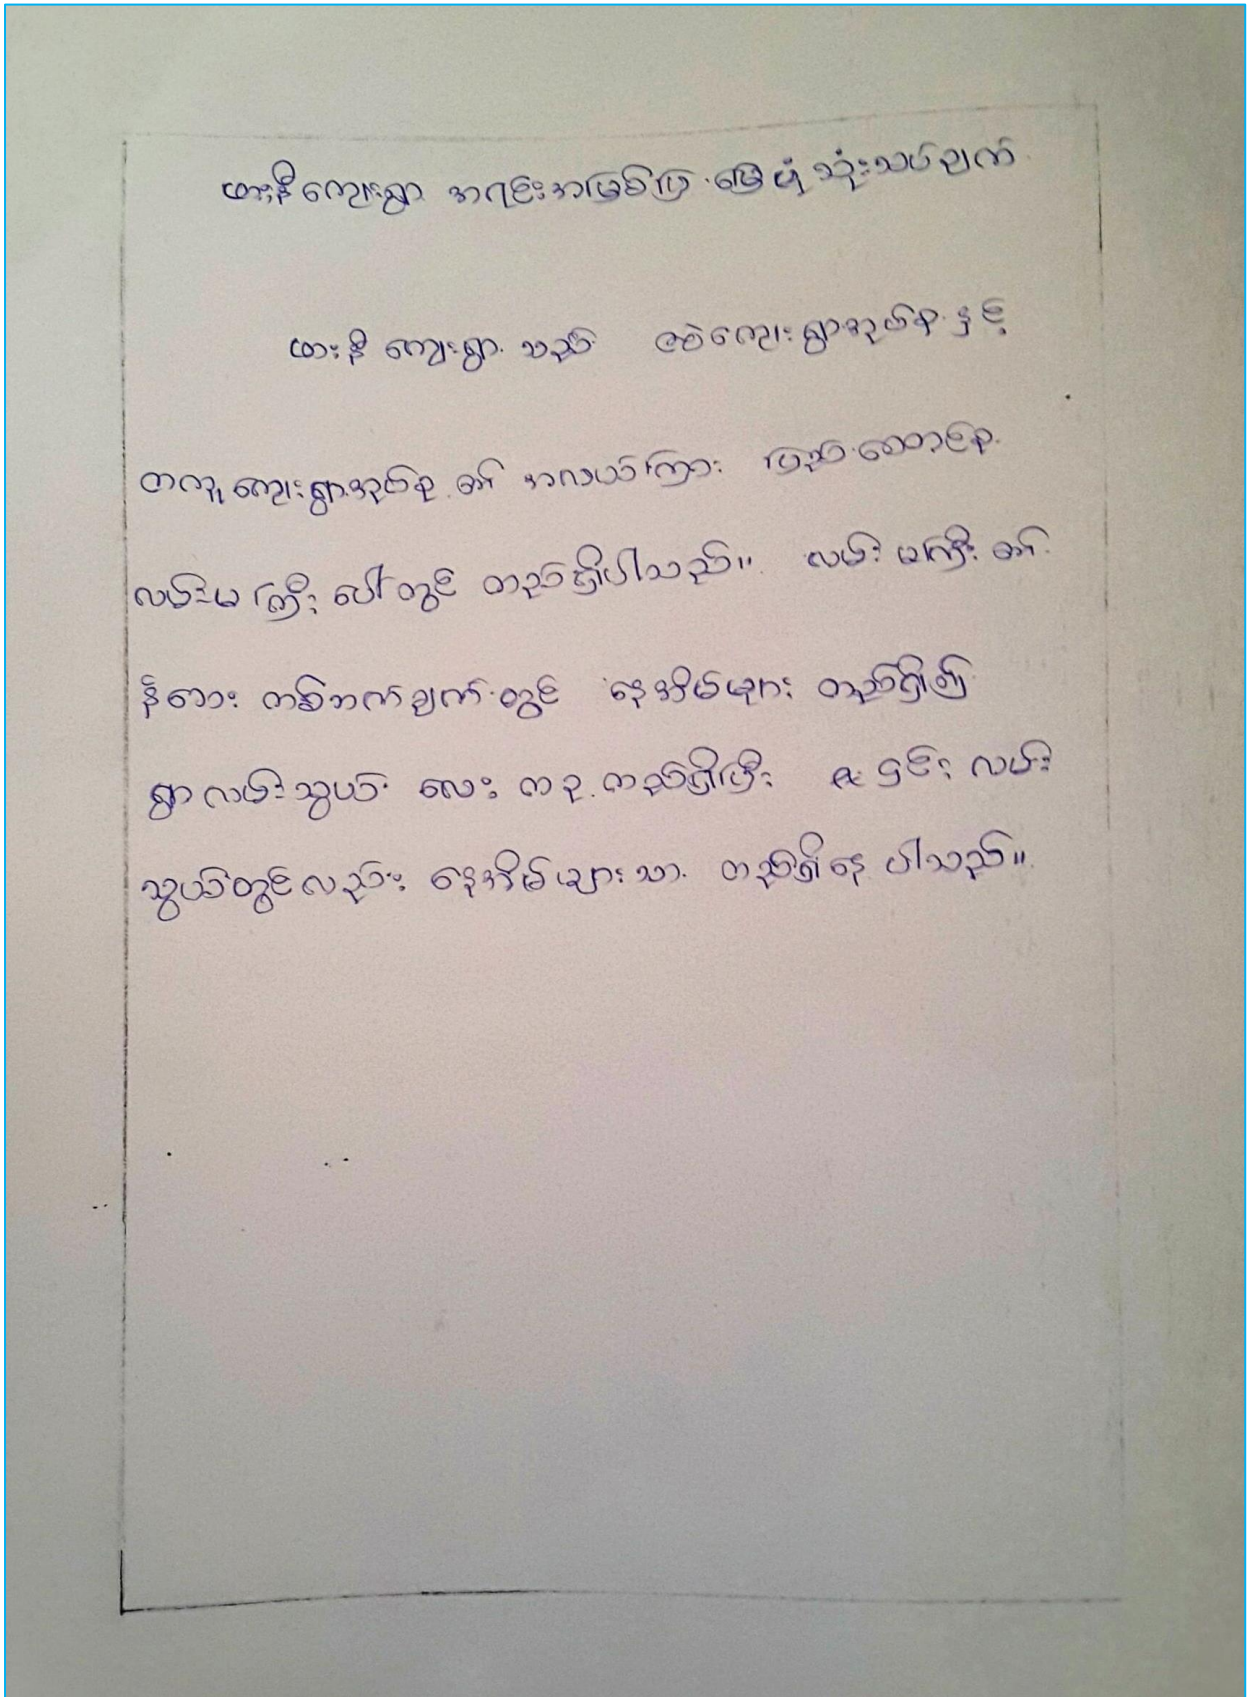 ထားနီကျေးရွာ အရင်းအမြစ်ပြ မြေပုံ သုံးသပ်ချက်
ထားနီ ကျေးရွာ သည် ကျေးရွာအုပ်စု နှင့်
တကူ ကျေးရွာအုပ်စု ၏ အလယ်ကြား ပြည်ထောင်စု
လမ်းမကြီး ပေါ်တွင် တည်ရှိပါသည်။ လမ်းမကြီး ၏
နံဘေး တစ်ဘက်ချက်တွင် နေအိမ်များ တည်ရှိ၍
ရွာလမ်းသွယ် လေး ကု တည်ရှိပြီး ၎င်း လမ်း
သွယ်တွင်လည်း နေအိမ်များသာ တည်ရှိနေ ပါသည်။